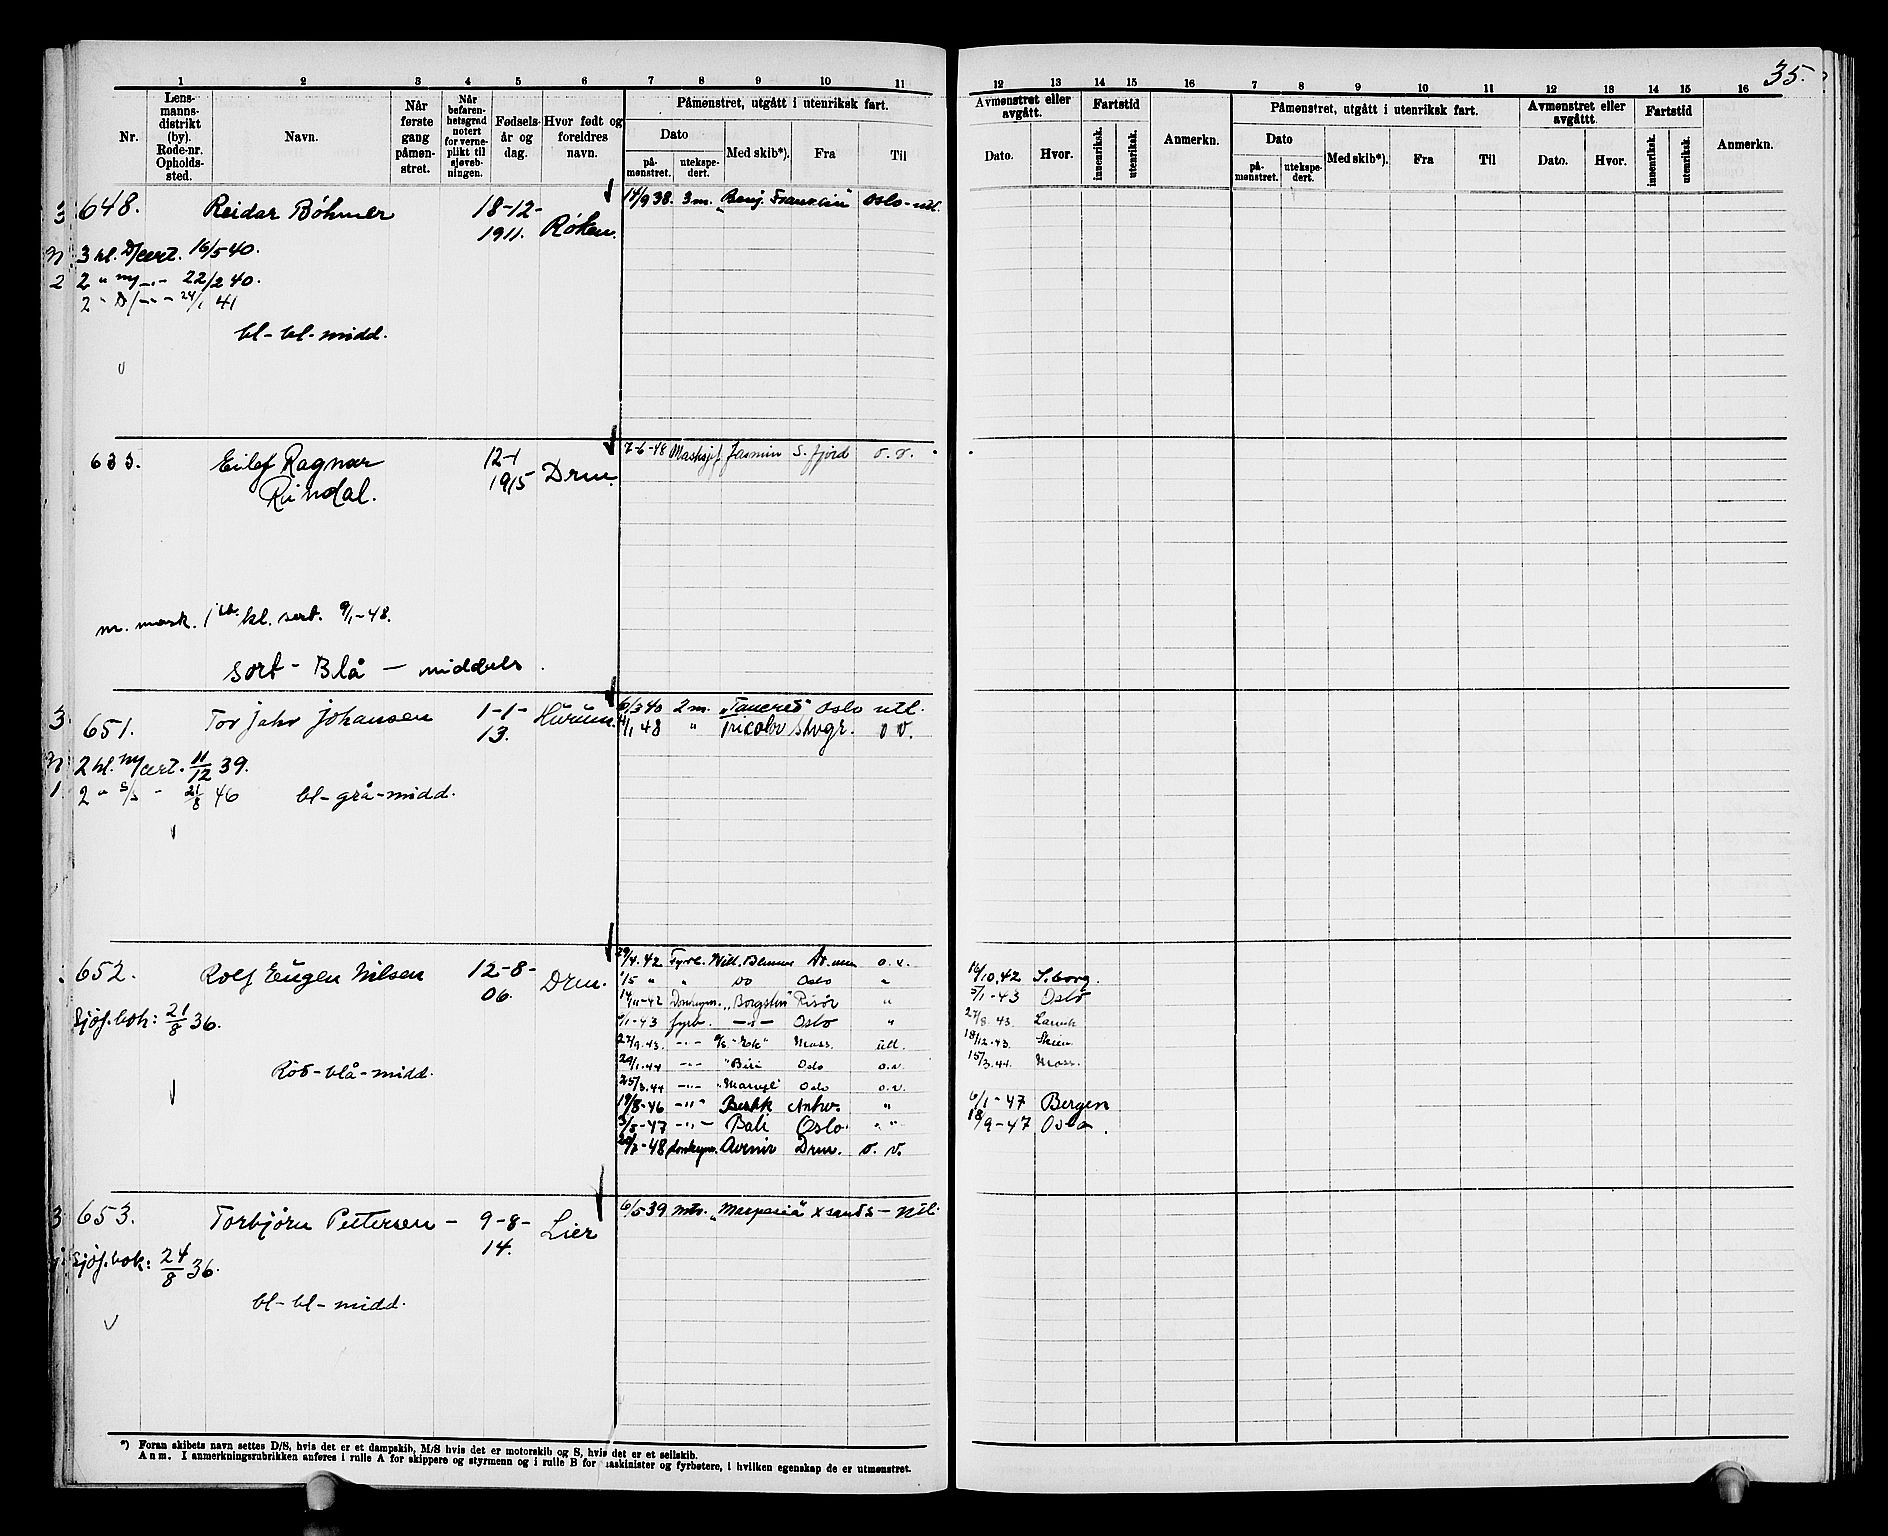 35.
1 2 3 4 5 6 7 8 9 10 11
Nr. Lens-manns-distrikt (by). Rode-nr. Opholds-sted. Navn. Når første gang påmøn-stret. Når befaren-hetsgrad notert for verne-plikt til sjøvæb-ningen. Fødsels-år og dag. Hvor født og foreldres navn.
Påmønstret, utgått i utenriksk fart.
Dato
på-mønstret. utekspe-dert. Med skib*). Fra Til
12 13 14 15 16 7 8 9 10 11 12 13 14 15 16
Avmønstret eller avgått. Fartstid Påmønstret, utgått i utenriksk fart. Avmønstret eller avgåttt. Fartstid
Dato. Hvor. innenriksk. utenriksk. Anmerkn. Dato på-mønstret. utekspe-dert. Med skib*). Fra Til Dato. Hvor. innenriksk. utenriksk. Anmerkn.
3 648. Reidar Bøhmer 18-12-1911. Røken. 14/9 38. 3 m. "Benj. Franklin" Oslo - utl.
3 kl. D/cert. 16/5 40.
2 2 " my -"- 22/2 40.
2 - D/-"- - 24/1 41
bl-bl-midd.
633. Eilef Ragnar Rindal. 12-1 1915 Drm. 7-6-48 Jasmin S. fjord o. v.
m. mask. 1ste kl. sert. 9/1-48.
Sort - Blå - middels.
3. 651. Tor Jahr Johansen 1-1-13. Hurum. 6/3 40 2 m. "Tancred" Oslo utl.
1/1 48 " Tricolor Stvgr. o v.
2 kl. my/cert. 11/12 39.
1. 2 " S/s - 21/8 46 bl-grå-midd.
652. Rolf Eugen Nilsen 12-8-06. Drm. 29/4.42 Fyrb. Will. Blumer o. v.
1/5 " " Do Oslo "
14/11-42 Donkeym. "Borgstein" Risør "
1-43 fyrb. -"- Oslo "
27/9.43. -"- "Eek" Moss. utl.
29/1.44 -"- "Biri" Oslo o.v.
25/3.44 -"- Oslo o.v.
19/8-46 -"- Antw. "
3/5-47 -"- Bali Oslo. " "
20/7-48 donkeym. Avenir Drm. o. v.
16/10.42 S.borg.
5/1-43 Oslo
27/8.43. Larvik
18/12.43. Skien
15/3.44. Moss.
6/1-47 Bergen
18/9-47 Oslo.
Sjøf.bok: 21/8 36.
Rød-blå-midd.
3 653. Torbjørn Pettersen - 9-8-14. Lier 6/5 39 mtr. X sands - utl.
Sjøf.bok: 24/8 36.
bl-bl-midd.
*) Foran skibets navn settes D/S, hvis det er et dampskib, M/S hvis det er motorskib og S, hvis det er et seilskib.
Anm. I anmerkningsrubrikken anføres i rulle A for skippere og styrmenn og i rulle B for maskinister og fyrbøtere, i hvilken egenskap de er utmønstret.